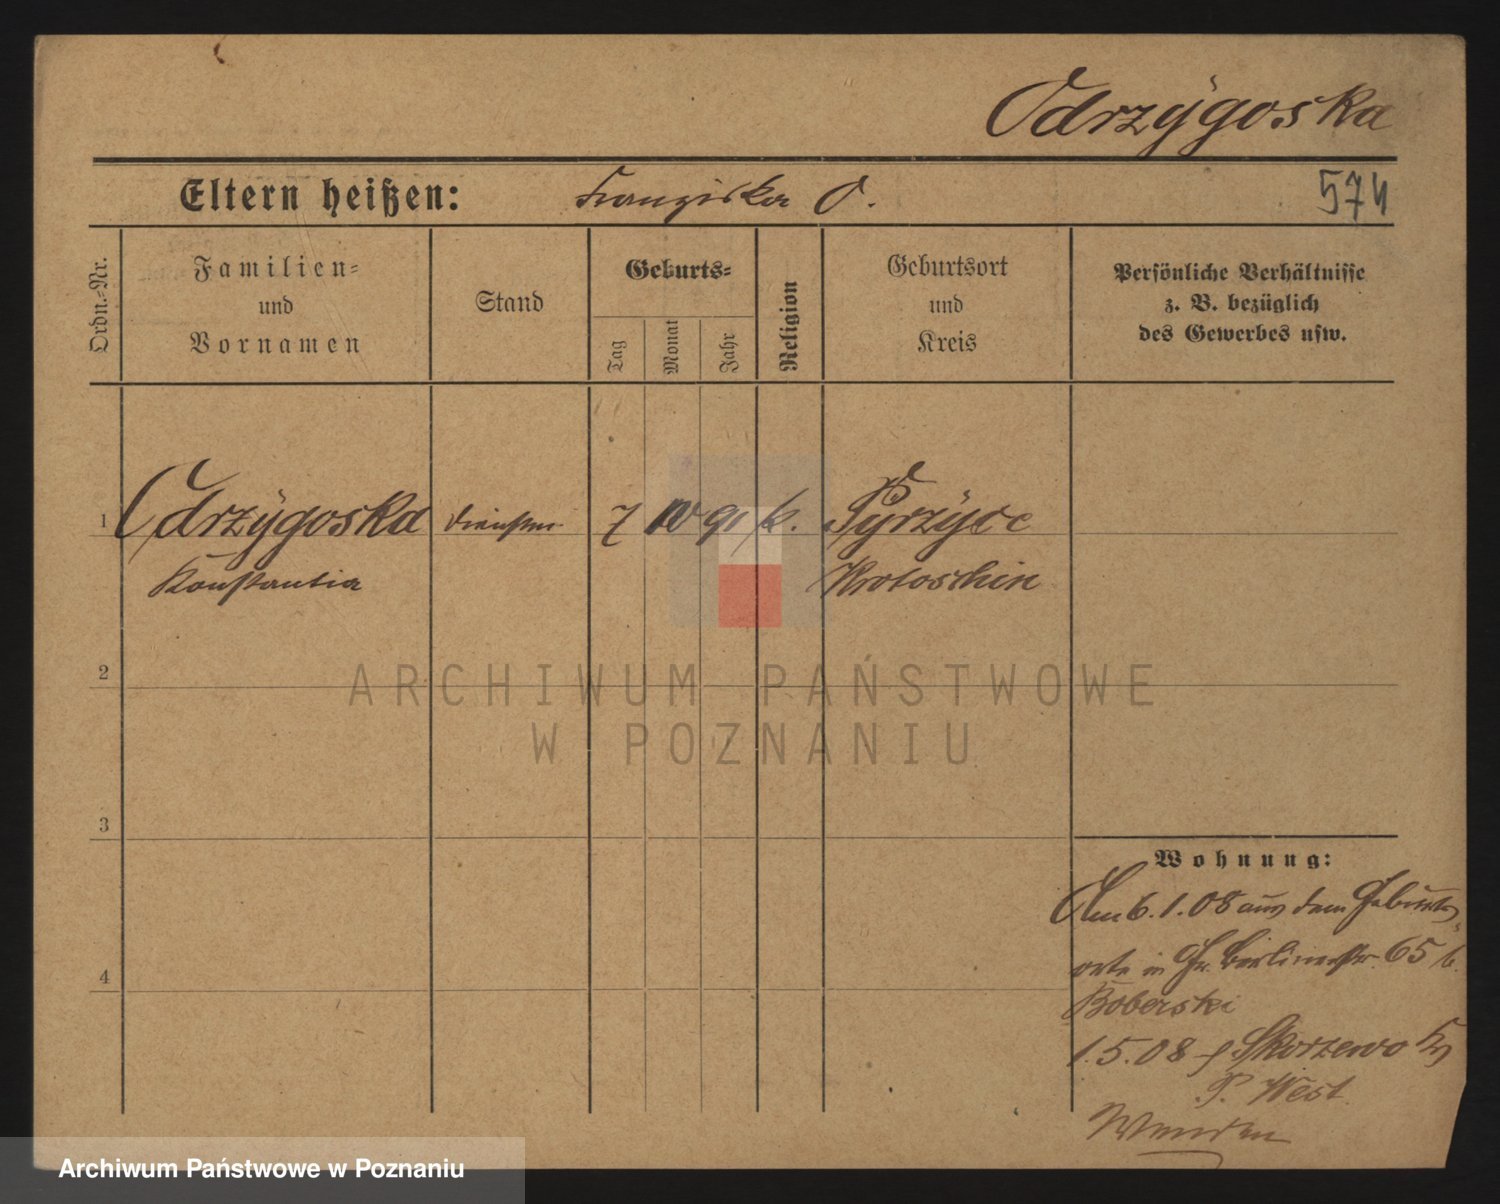 Odrzÿgoska
Eltern heißen: Franziska O.
574
Ordn.=Nr.
Familien=
und
Vornamen
Stand
Geburts=
Tag
Monat
Jahr
Religion
Geburtsort
und
Kreis
Persönliche Verhältnisse
z. B. bezüglich
des Gewerbes usw.
1 Odrzÿgoska 7 IV 91 k.
Konstantia Krotoschin
2
3
4
Wohnung:
Am 6.1.08 aus dem Geburts
orte in Gr. Berlinerstr. 65 b.
Boberski
1.5.08 Skorzewo
P. West
ARCHIWUM PAŃSTWOWE
W POZNANIU
Archiwum Państwowe w Poznaniu